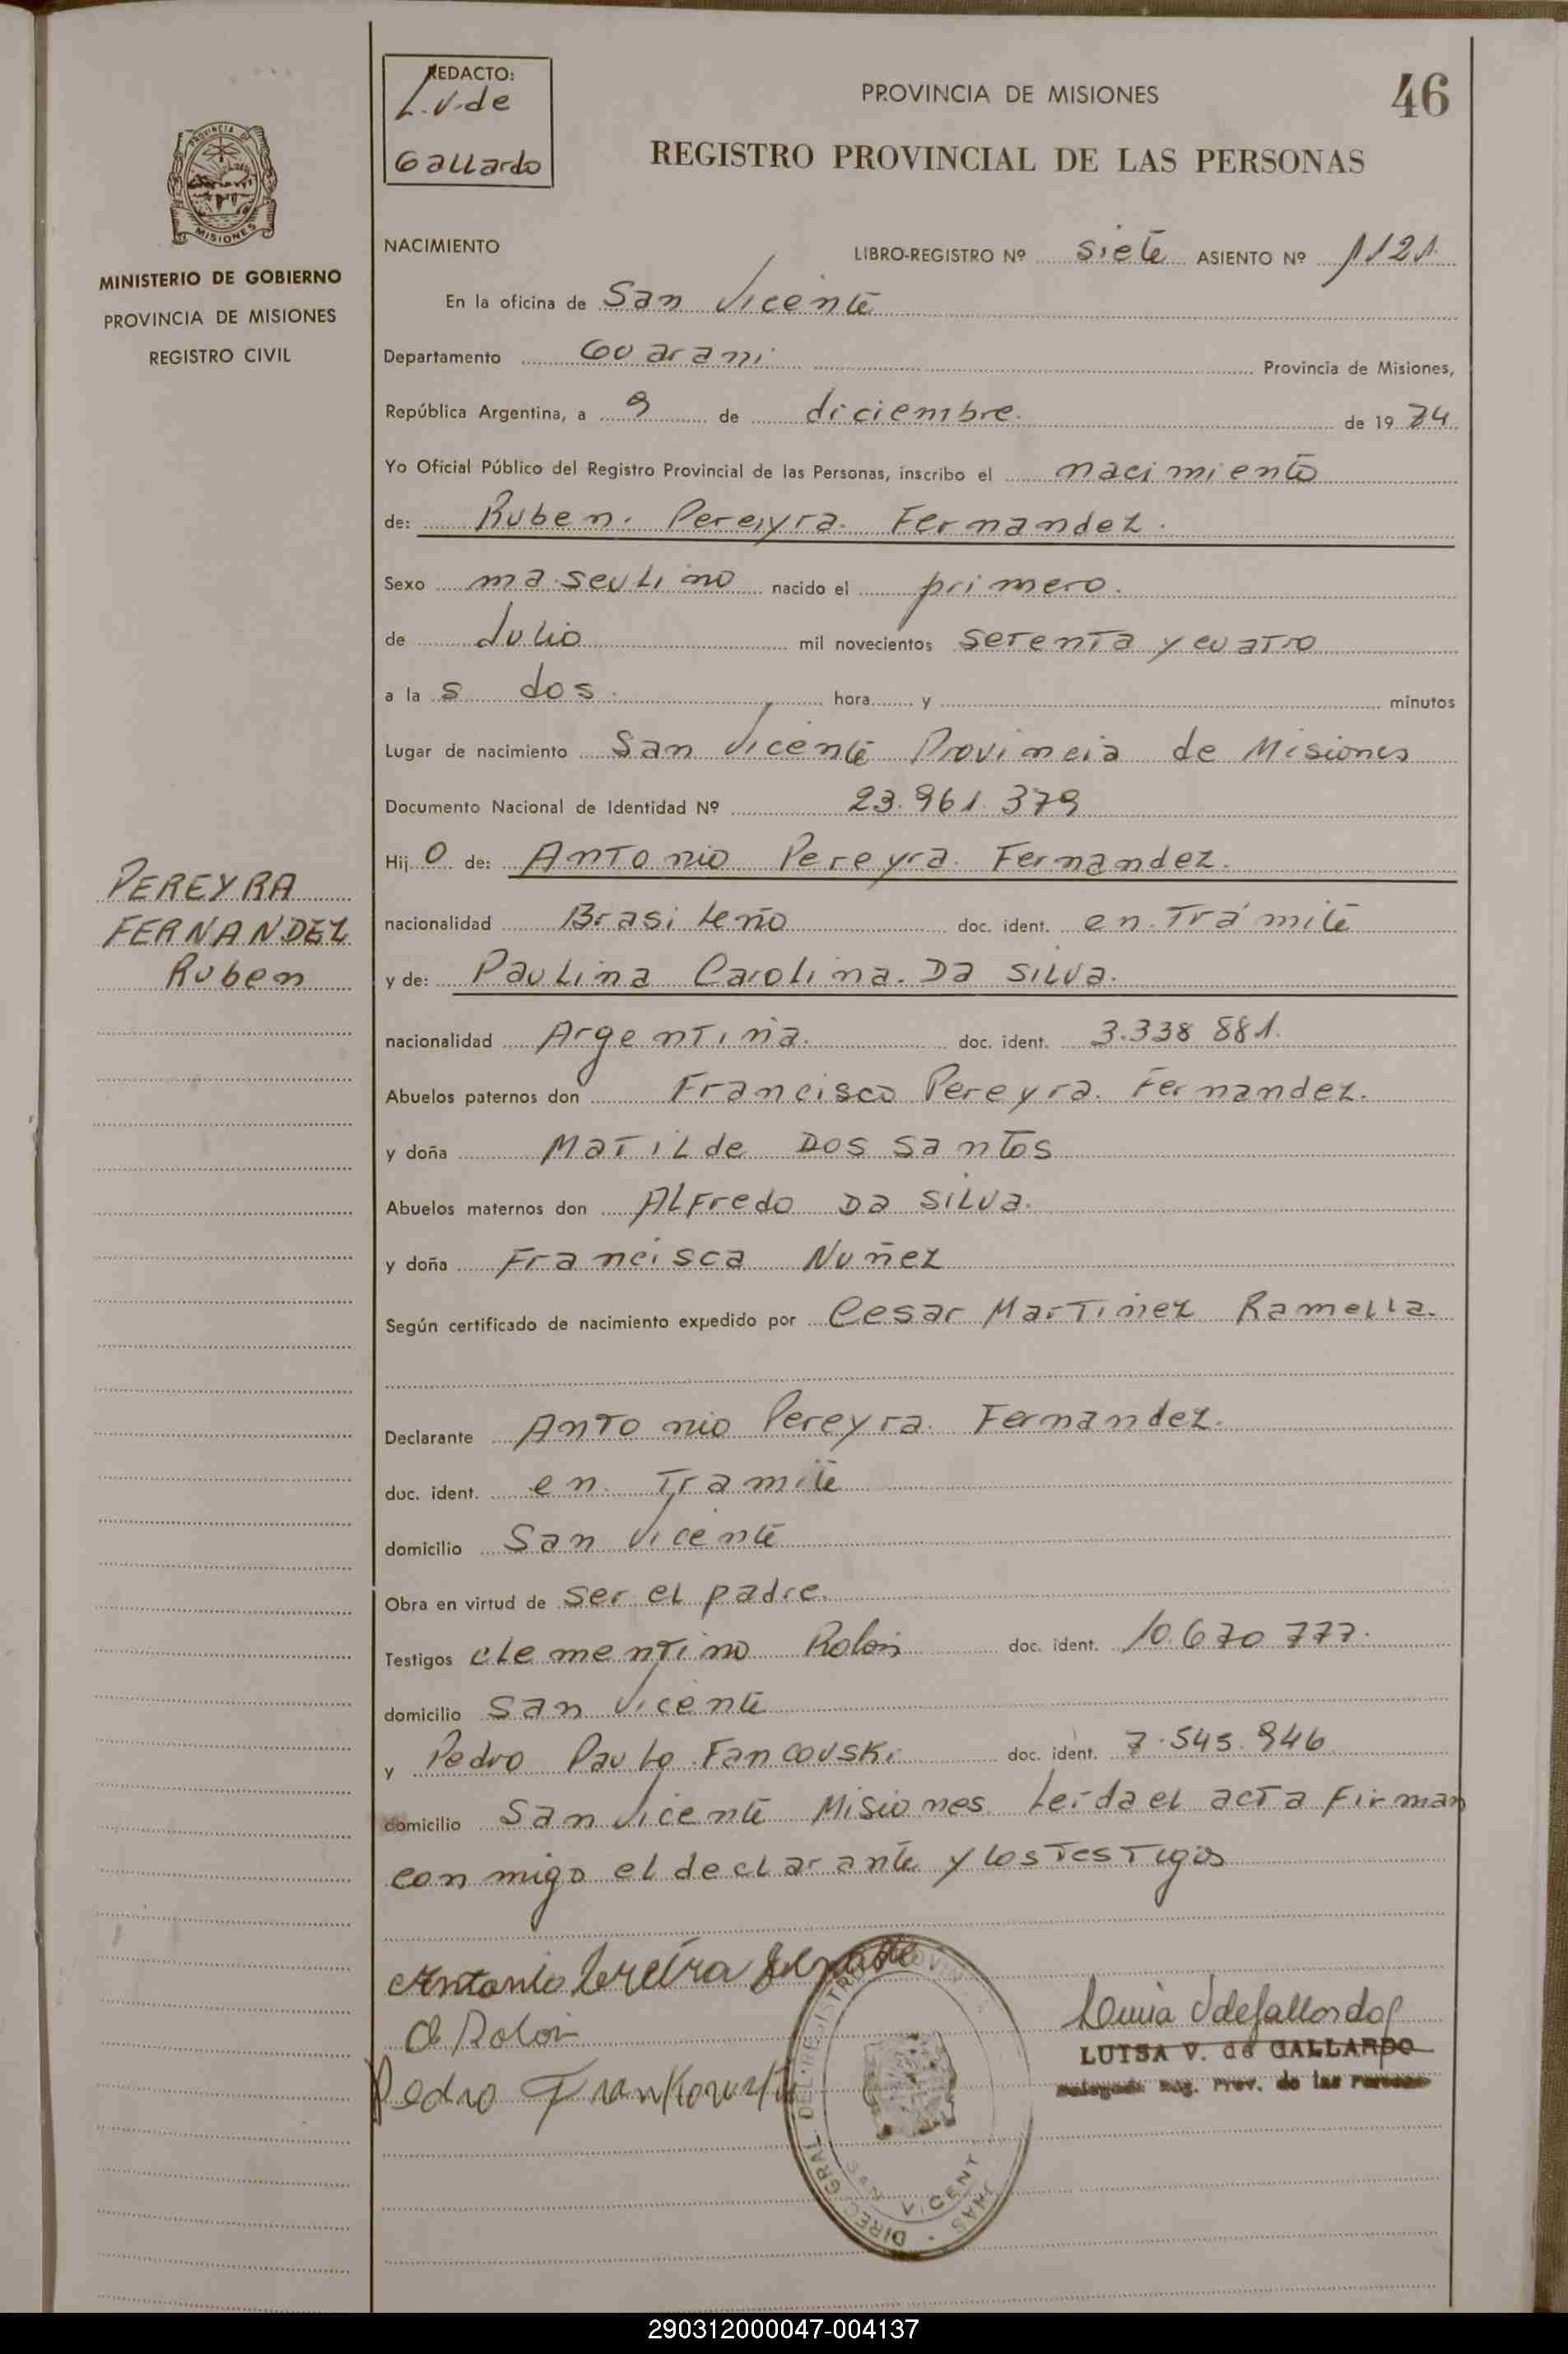 REDACTO:
L. V. de
Gallardo
PROVINCIA DE MISIONES
46
REGISTRO PROVINCIAL DE LAS PERSONAS
PROVINCIA DE
MISIONES
MINISTERIO DE GOBIERNO
PROVINCIA DE MISIONES
REGISTRO CIVIL
NACIMIENTO
LIBRO-REGISTRO Nº siete ASIENTO Nº 1121
En la oficina de San Vicente
Departamento Guarani Provincia de Misiones,
República Argentina, a 9 de diciembre. de 1974
Yo Oficial Público del Registro Provincial de las Personas, inscribo el nacimiento
de: Ruben. Pereyra. Fernandez.
Sexo masculino nacido el primero.
de Julio mil novecientos setenta y cuatro
a la s dos. hora y minutos
Lugar de nacimiento San Vicente Provincia de Misiones
Documento Nacional de Identidad Nº 23.961.379
Hij o de: Antonio Pereyra. Fernandez.
nacionalidad Brasileño doc. ident. en Trámite
y de: Paulina Carolina. Da Silva.
nacionalidad Argentina. doc. ident. 3.338 881.
Abuelos paternos don Francisco Pereyra. Fernandez.
y doña Matilde Dos Santos
Abuelos maternos don Alfredo Da Silva.
y doña Francisca Nuñez
Según certificado de nacimiento expedido por Cesar Martinez Ramella.
Declarante Antonio Pereyra. Fernandez.
doc. ident. en Tramite
domicilio San Vicente
Obra en virtud de ser el padre.
Testigos Clementino Rolon doc. ident. 10.670 777.
domicilio San Vicente
y Pedro Paulo Fancouski doc. ident. 7.545.946
domicilio San Vicente Misiones Leida el acta firman
conmigo el declarante y los Testigos
PEREYRA
FERNANDEZ
Ruben
Antonio Pereira
C Rolon
Pedro
LUISA V. de GALLARDO
Delegada Reg. Prov. de las Personas
DIREC. GRAL DEL REGISTRO PROVINCIAL
SAN VICENTE
290312000047-004137